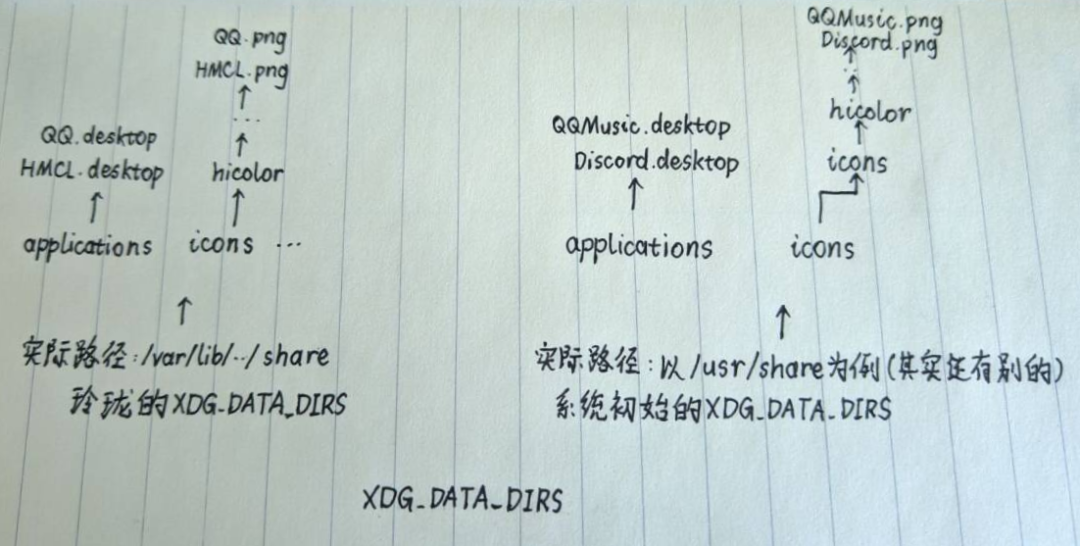 QQ.png
HMCL.png
...
QQ.desktop
HMCL.desktop
hicolor
applications icons ...
实际路径:/var/lib/../share
玲珑的XDG_DATA_DIRS
QQMusic.png
Discord.png
..
hicolor
QQMusic.desktop
Discord.desktop
icons
applications
icons
实际路径:以/usr/share为例(其实还有别的)
系统初始的XDG_DATA_DIRS
XDG_DATA_DIRS